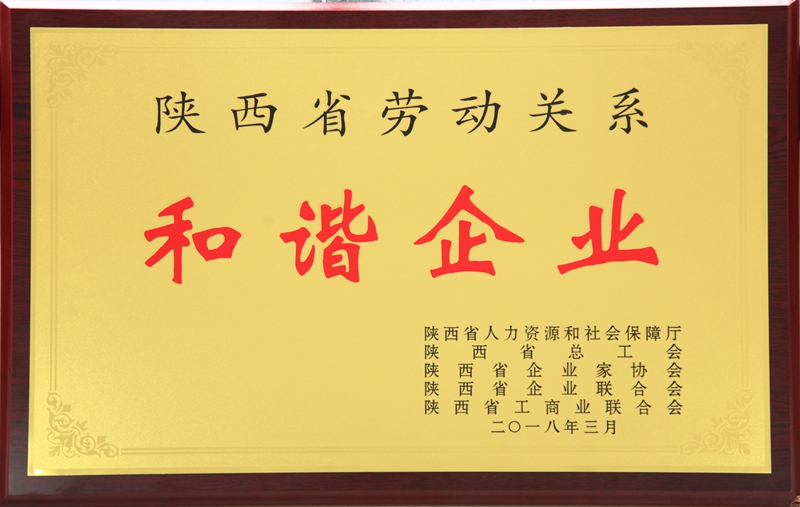 陕西省劳动关系
和谐企业
陕西省人力资源和社会保障厅
陕西省总工会
陕西省企业家协会
陕西省企业联合会
陕西省工商业联合会
二〇一八年三月